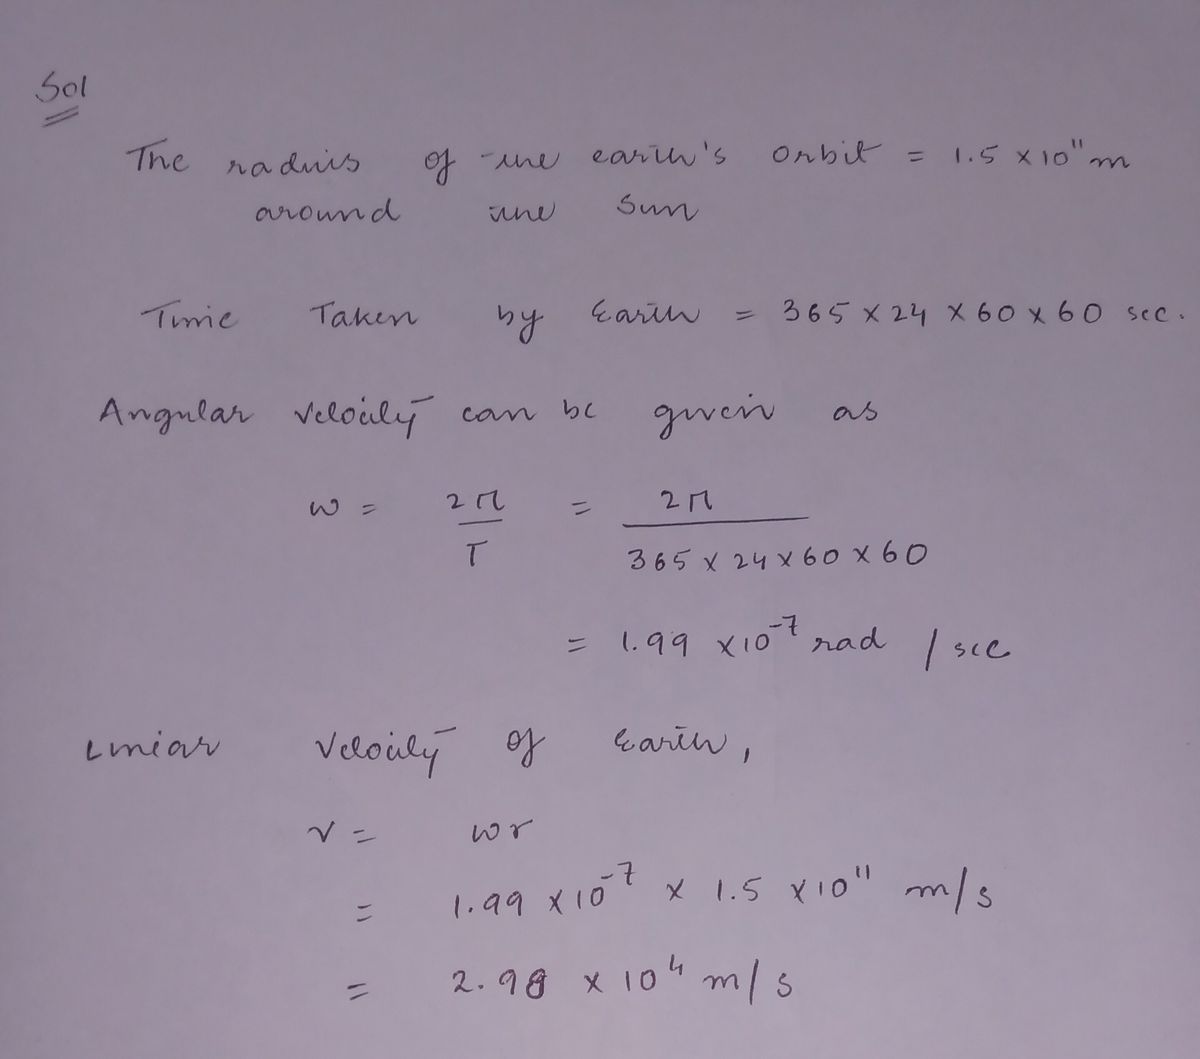 Sol
The radius of the earth's orbit = 1.5 × 10¹¹ m
around the Sun
Time Taken by Earth = 365 × 24 × 60 × 60 sec.
Angular velocity can be given as
w = 2π/T = 2π/(365 × 24 × 60 × 60)
= 1.99 × 10⁻⁷ rad / sec
Linear Velocity of Earth,
v = wr
= 1.99 × 10⁻⁷ × 1.5 × 10¹¹ m/s
= 2.98 × 10⁴ m/s